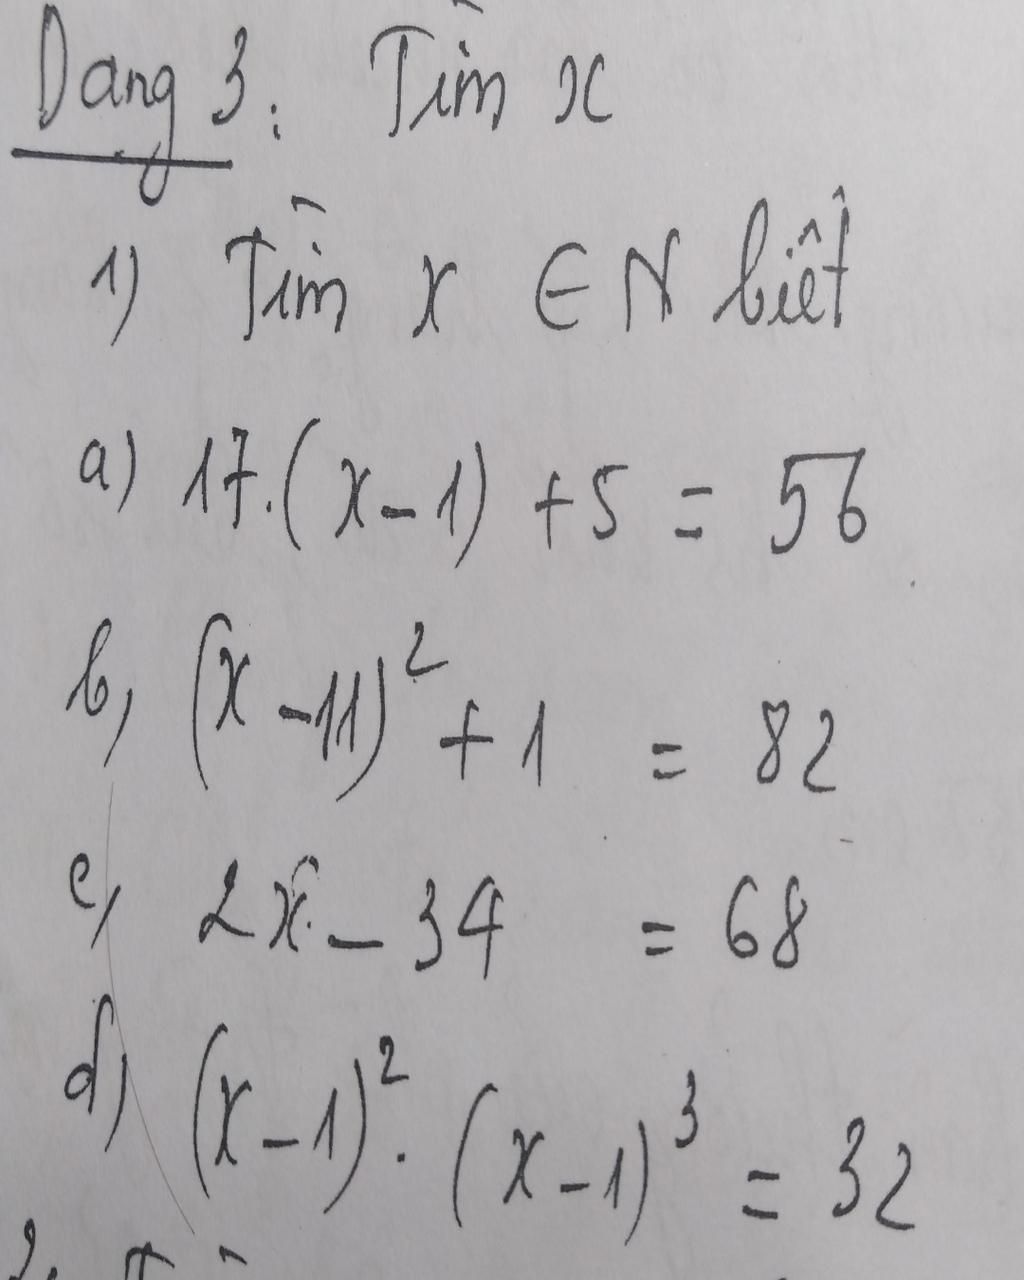 Dạng 3: Tìm x
1) Tìm x ∈ N biết
a) 17.(x-1) + 5 = 56
b, (x-11)² + 1 = 82
c, 2x - 34 = 68
d, (x-1)². (x-1)³ = 32